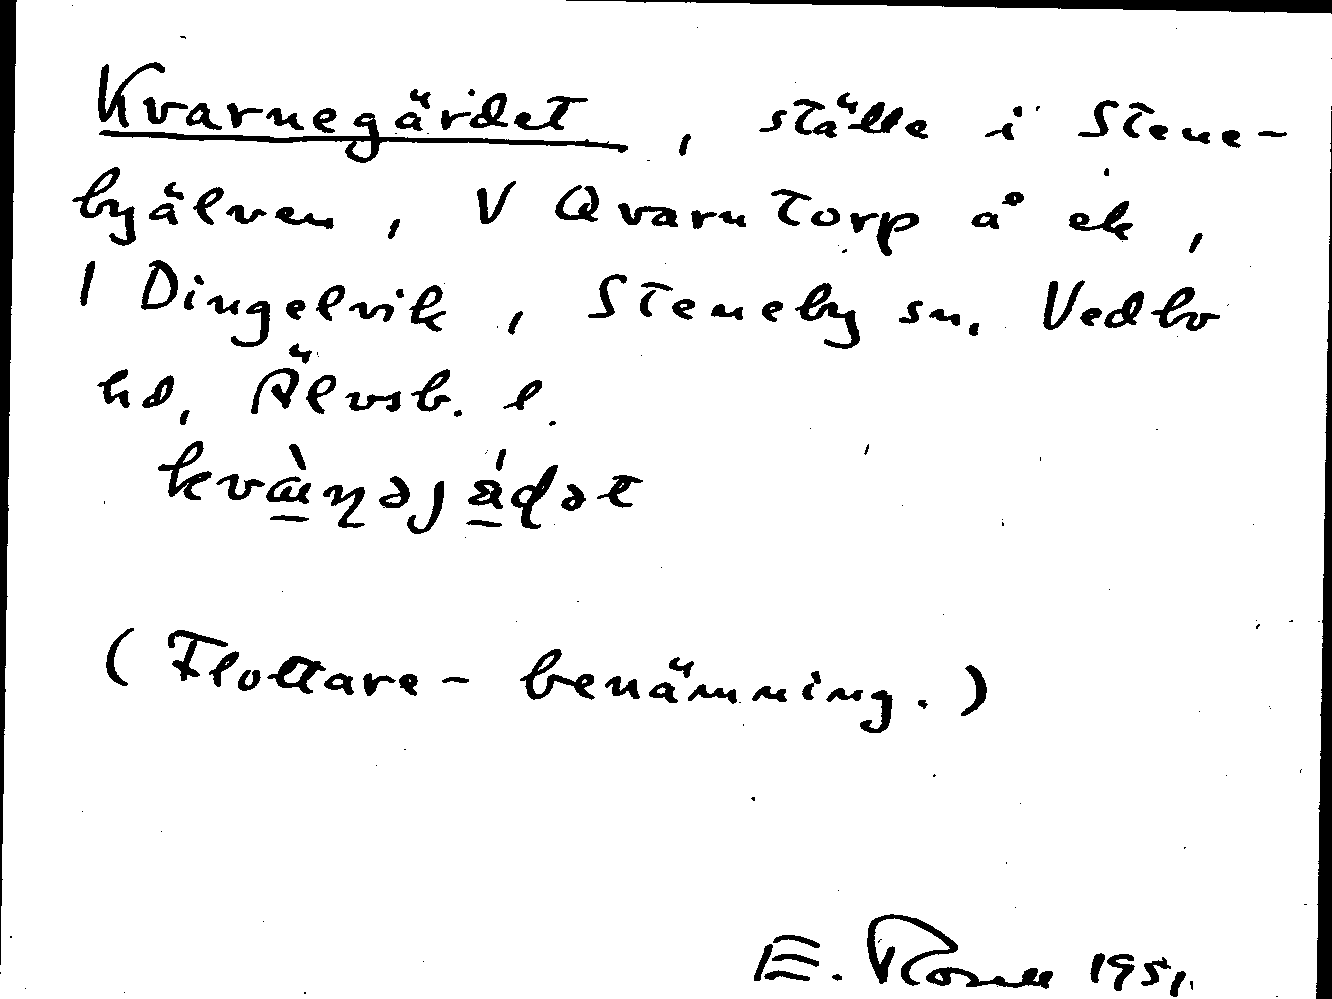 Kvarnegärdet, ställe i Stene-
byälven, V Qvarntorp å ek,
1 Dingelvik, Steneby sn, Vedbo
hd, Älvsb. l.
(Flottare-benämning.)
E. 1951.